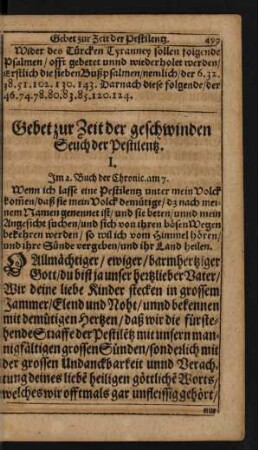 Gebet zur Zeit der Pestilentz. 499
Wider des Türcken Tyranney sollen folgende
Psalmen/ offt gebetet unnd wiederholet werden/
Erstlich die sieben Bußpsalmen/nemlich/der 6.32.
38.51.102.130.143. Darnach diese folgende/der
46.74.78.80.83.85.120.124.
Gebet zur Zeit der geschwinden
Seuch der Pestilentz.
I.
Im 2. Buch der Chronic. am 7.
Wenn ich lasse eine Pestilentz unter mein Volck
kom̃en/daß sie mein Volck demütige/ dz nach mei-
nem Namen genennet ist/ und sie beten/ unnd mein
Angesicht suchen/und sich von ihren bösen Wegen
bekehren werden/ so wil ich vom Himmel hören/
und ihre Sünde vergeben/und ihr Land heilen.
O Allmächtiger/ ewiger/ barmhertziger
Gott/ du bist ja unser hertzlieber Vater/
Wir deine liebe Kinder stecken in grossem
Jammer/Elend und Noht/ unnd bekennen
mit demütigen Hertzen/ daß wir die fürste-
hende Straffe der Pestilẽtz mit unsern man-
nigfältigen grossen Sünden/ sonderlich mit
der grossen Undanckbarkeit unnd Verach-
tung deines liebẽ heiligen göttlichẽ Worts/
welches wir offtmals gar unfleissig gehört/